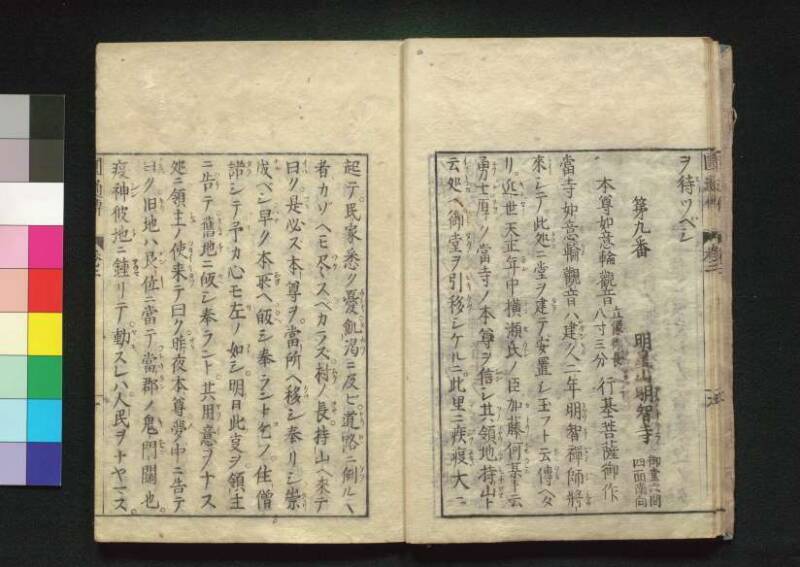 ヲ待ツベシ
第九番 明星山明智寺 御堂六間四面南向
本尊如意輪觀音 立像御長八寸三分 行基菩薩御作
當寺如意輪觀音ハ建久二年明智禪師將
來シテ此処ニ堂ヲ建テ安置シ玉フト云傳ヘタ
リ近世天正年中横瀬氏ノ臣加藤何某ト云
勇士厚ク當寺ノ本尊ヲ信シ其領地持山ト
云処ヘ御堂ヲ引移シケルニ此里ニ疾疫大ニ
起テ民家悉ク憂飢渇ニ及ヒ道路ニ倒ルヽ
者カゾヘモ尽スベカラス村ノ長持山ヘ来テ
曰ク是必ス本尊ヲ當所ヘ移シ奉リシ祟
成ベシ早ク本所ヘ皈シ奉ラント乞フ住僧
諦シテ予カ心モ左ノ如シ明日此㕝ヲ領主
ニ告テ舊地ニ皈シ奉ラント其用意ヲナス
処ニ領主ノ使来テ曰ク昨夜本尊夢中ニ告テ
曰ク旧地ハ艮ノ位ニ當テ當郡ノ鬼門關也
疫神彼地ニ鍾リテ動スレハ人民ヲナヤマス